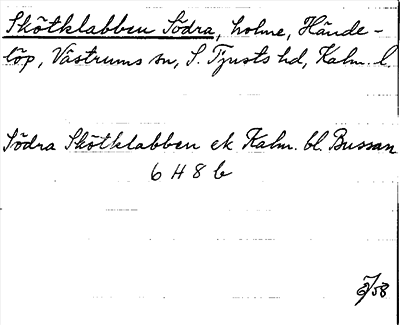 Skötklabben Södra, holme, Hände-
löp, Västrums sn, S. Tjusts hd, Kalm. l.
Södra Skötklabben ek Kalm. bl. Bussan
6 H 8 b
/58